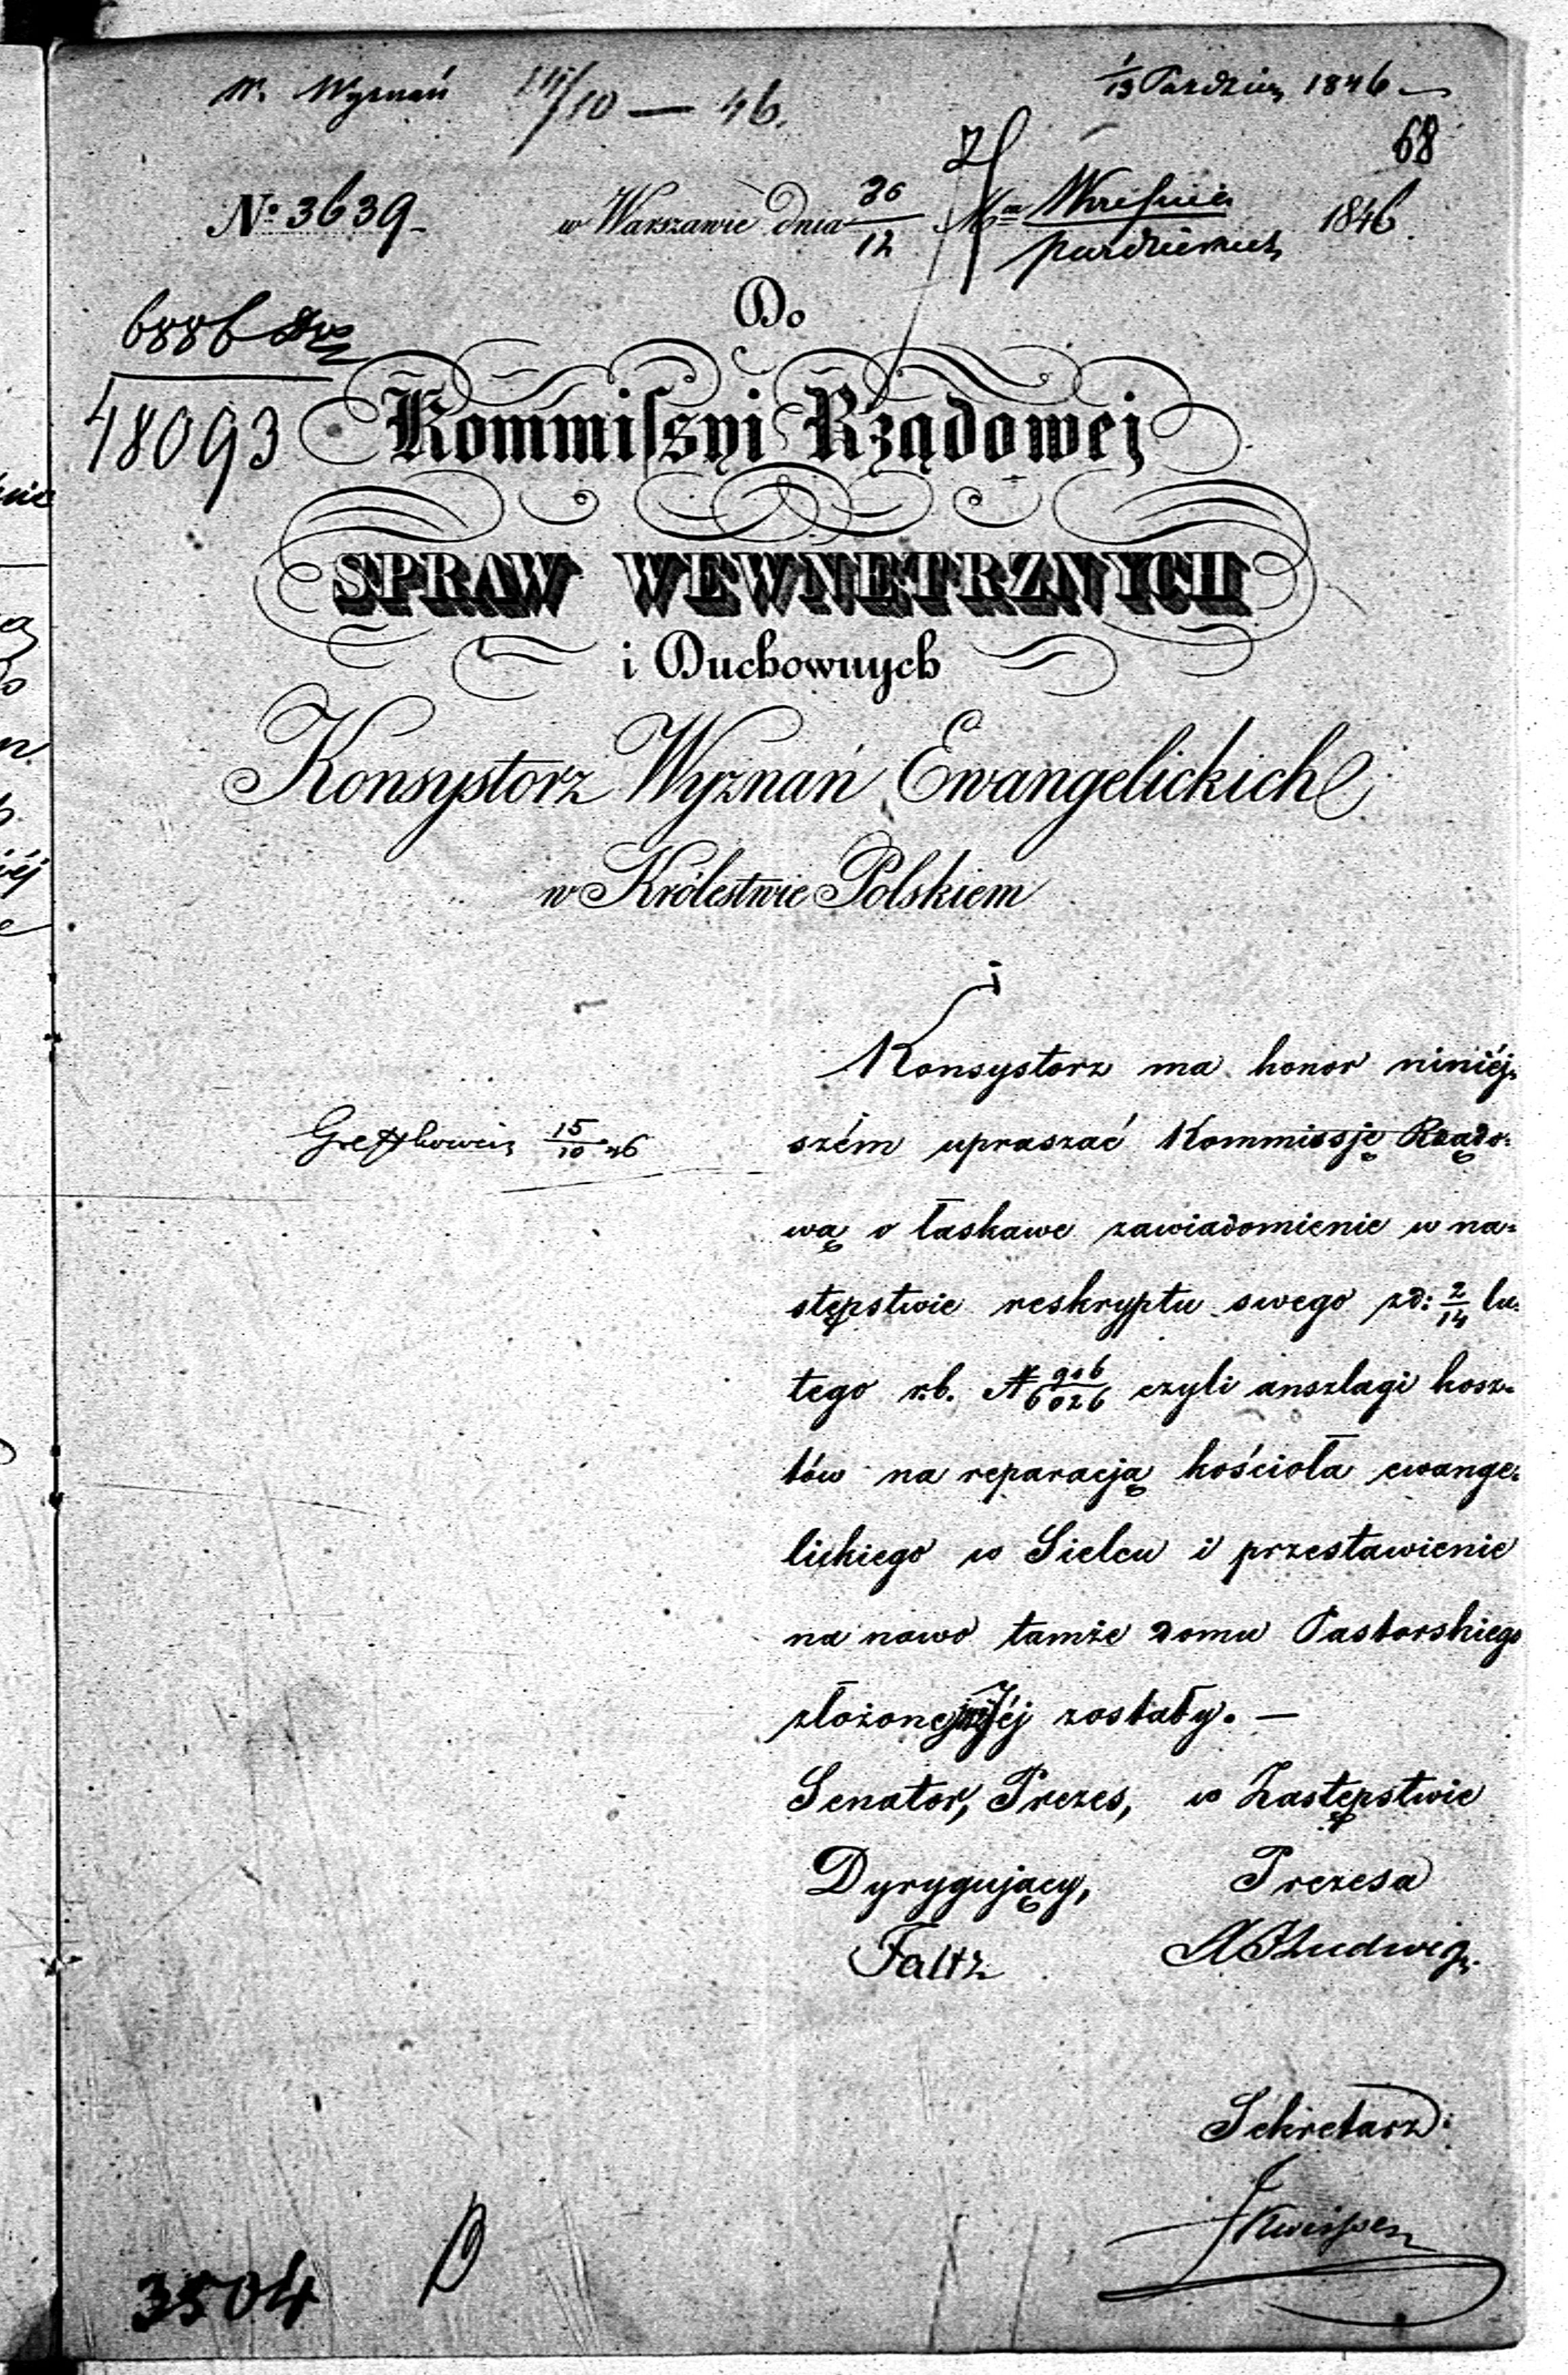 W. Wyznań /10 — 46.
1/13 Paździer 1846 —
68
№ 3639
w Warszawie dnia 30/12 Mca Września/października 1846.
6886
48093
Do
Kommissyi Rządowej
SPRAW WEWNĘTRZNYCH
i Duchownych
Konsystorz Wyznań Ewangelickich
w Królestwie Polskiem
Konsystorz ma honor niniéj-
15/10 46
szém upraszać Kommissję Rządo-
wą o łaskawe zawiadomienie w na-
stępstwie reskryptu swego zd: 2/14 lu-
tego r.b. № 916/6026 czyli anszlagi kosz-
tów na reparacją kościoła ewange-
lickiego w Sielcu i przestawienie
na nowo tamże domu Pastorskiego
złożone Jéj zostały. —
Senator, Prezes, w Zastępstwie
Dyrygujący, Prezesa
Faltz Ludwig
Sekretarz:
3504